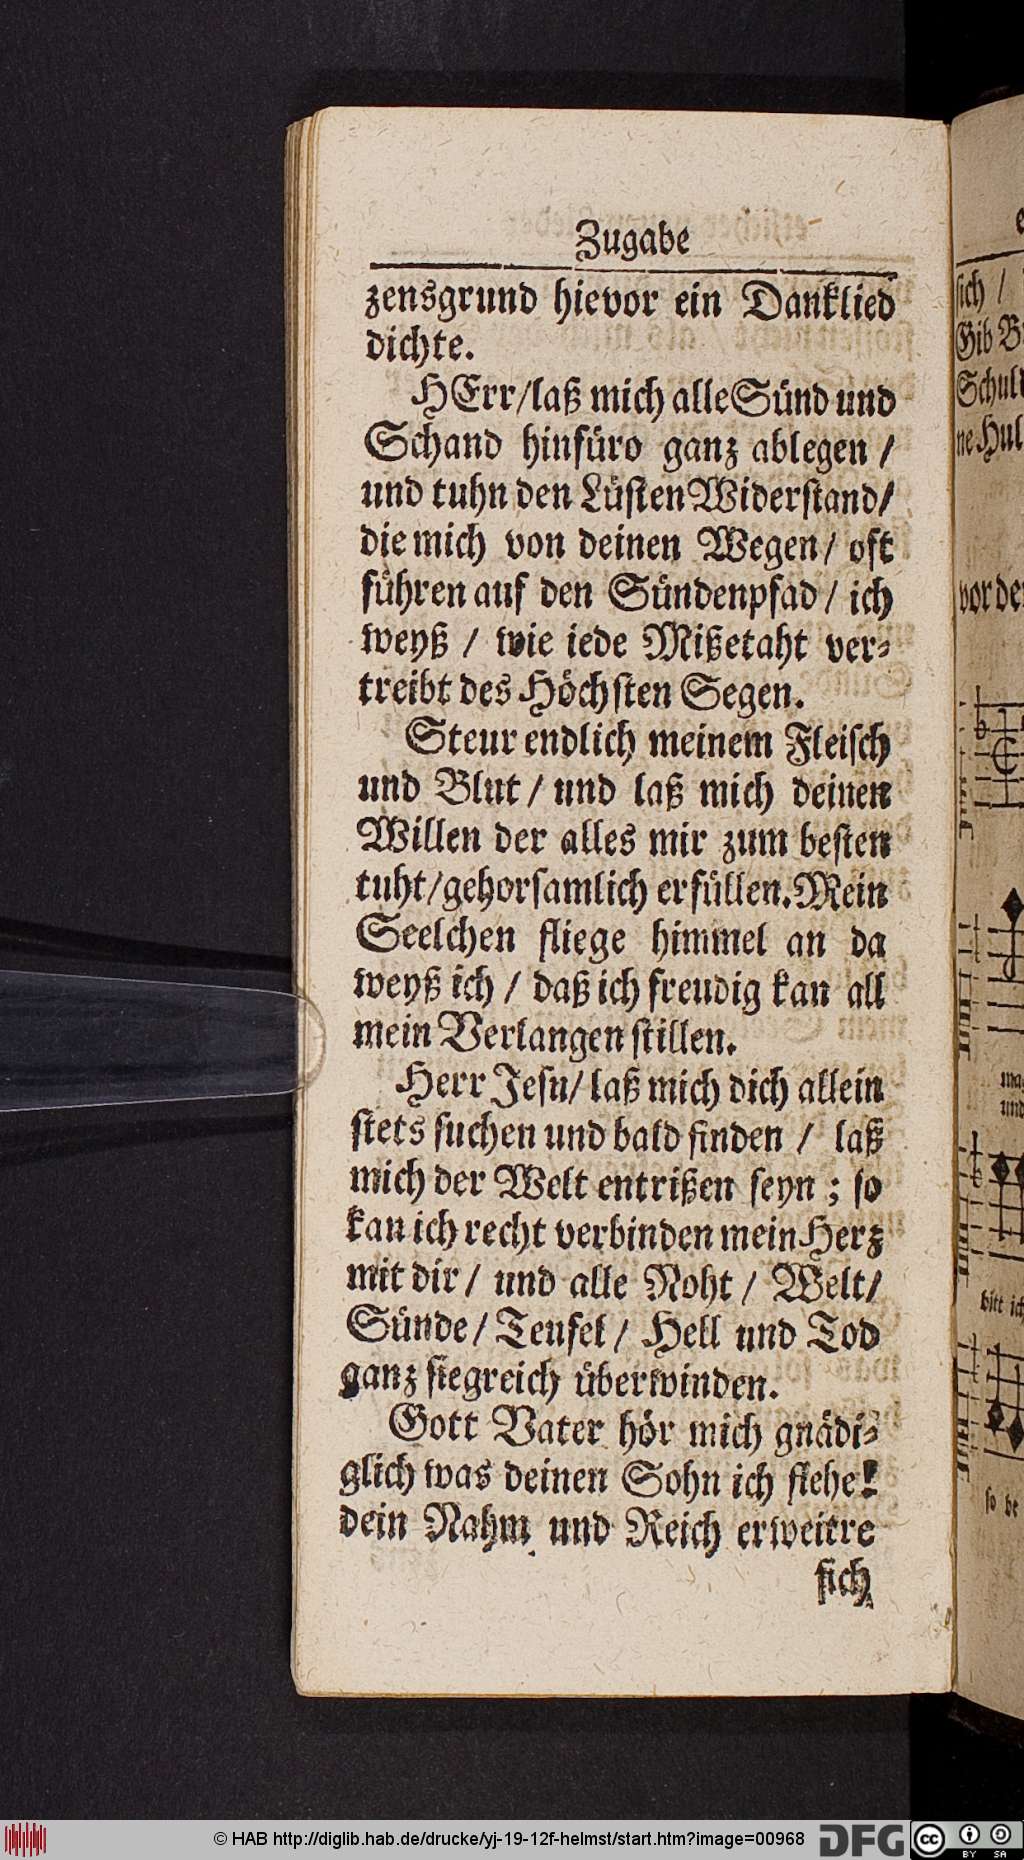 Zugabe
zensgrund hievor ein Danklied
dichte.
HErr/laß mich alle Sünd und
Schand hinfüro ganz ablegen /
und tuhn den Lüsten Widerstand/
die mich von deinen Wegen / oft
führen auf den Sündenpfad / ich
weyß / wie iede Mißetaht ver-
treibt des Höchsten Segen.
Steur endlich meinem Fleisch
und Blut / und laß mich deinen
Willen der alles mir zum besten
tuht/gehorsamlich erfüllen. Mein
Seelchen fliege himmel an da
weyß ich / daß ich freudig kan all
mein Verlangen stillen.
Herr Jesu/ laß mich dich allein
stets suchen und bald finden / laß
mich der Welt entrißen seyn ; so
kan ich recht verbinden mein Herz
mit dir / und alle Noht / Welt/
Sünde / Teufel / Hell und Tod
ganz siegreich überwinden.
Gott Vater hör mich gnädi-
glich was deinen Sohn ich flehe!
dein Nahm und Reich erweitre
sich
sich /
Gib
Schuld
vor
bitt ich
so
© HAB http://diglib.hab.de/drucke/yj-19-12f-helmst/start.htm?image=00968
DFG
cc
BY SA